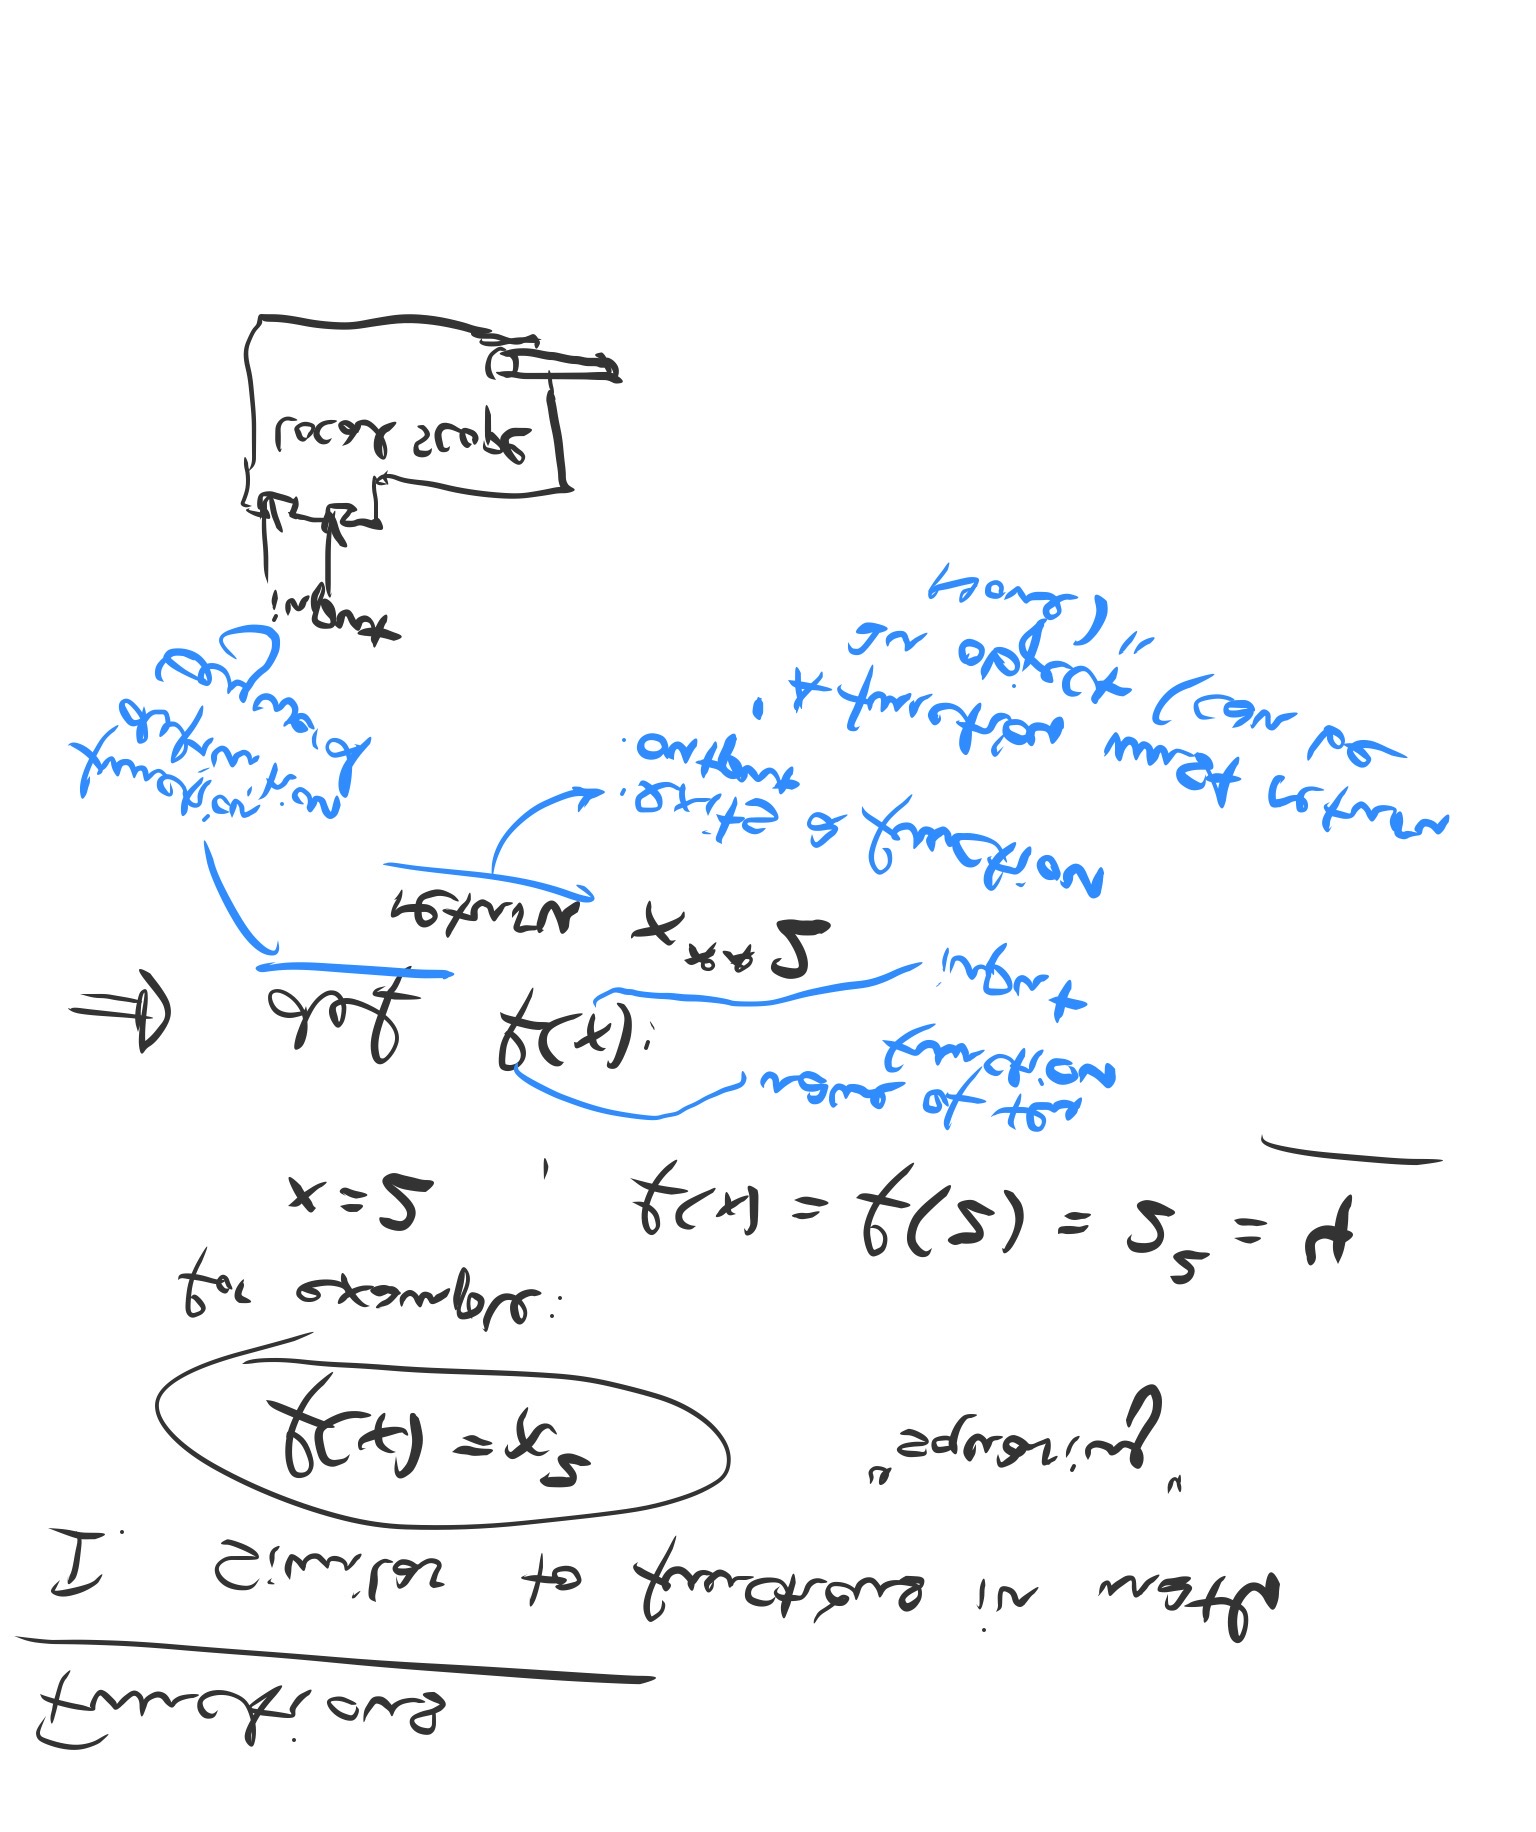 Functions
I. Similar to functions in math
f(x) = x² "squaring"
for example:
x = 2 , f(x) = f(2) = 2² = 4
name of the
function
⇒ def f(x):
input
return x**2
function
definition
keyword
. exits a function
. output
. "A function must return
an object (can be
None)"
input
Local scope